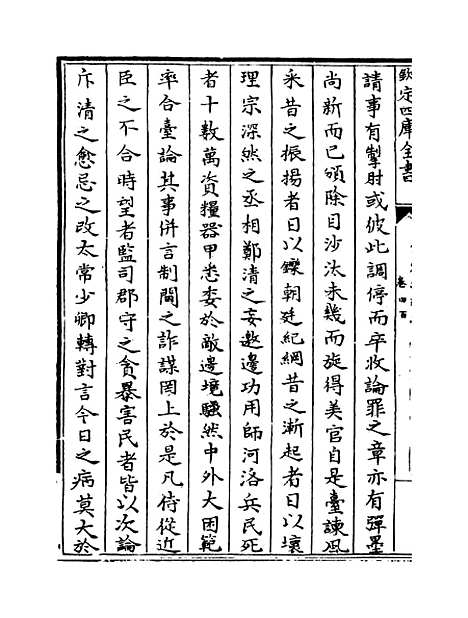 欽定四庫全書
卷四百
請事有掣肘或彼此調停而卒收論罪之章亦有彈墨
尚新而已頒除目沙汰未幾而旋得美官自是臺諫風
采昔之振揚者日以鑠朝廷紀綱昔之漸起者日以壞
理宗深然之丞相鄭清之妄邀邊功用師河洛兵民死
者十數萬資糧器甲悉委於敵邊境騷然中外大困範
率合臺論其事併言制閫之詐謀罔上於是凡侍從近
臣之不合時望者監司郡守之貪暴害民者皆以次論
斥清之愈忌之改太常少卿轉對言今日之病莫大於